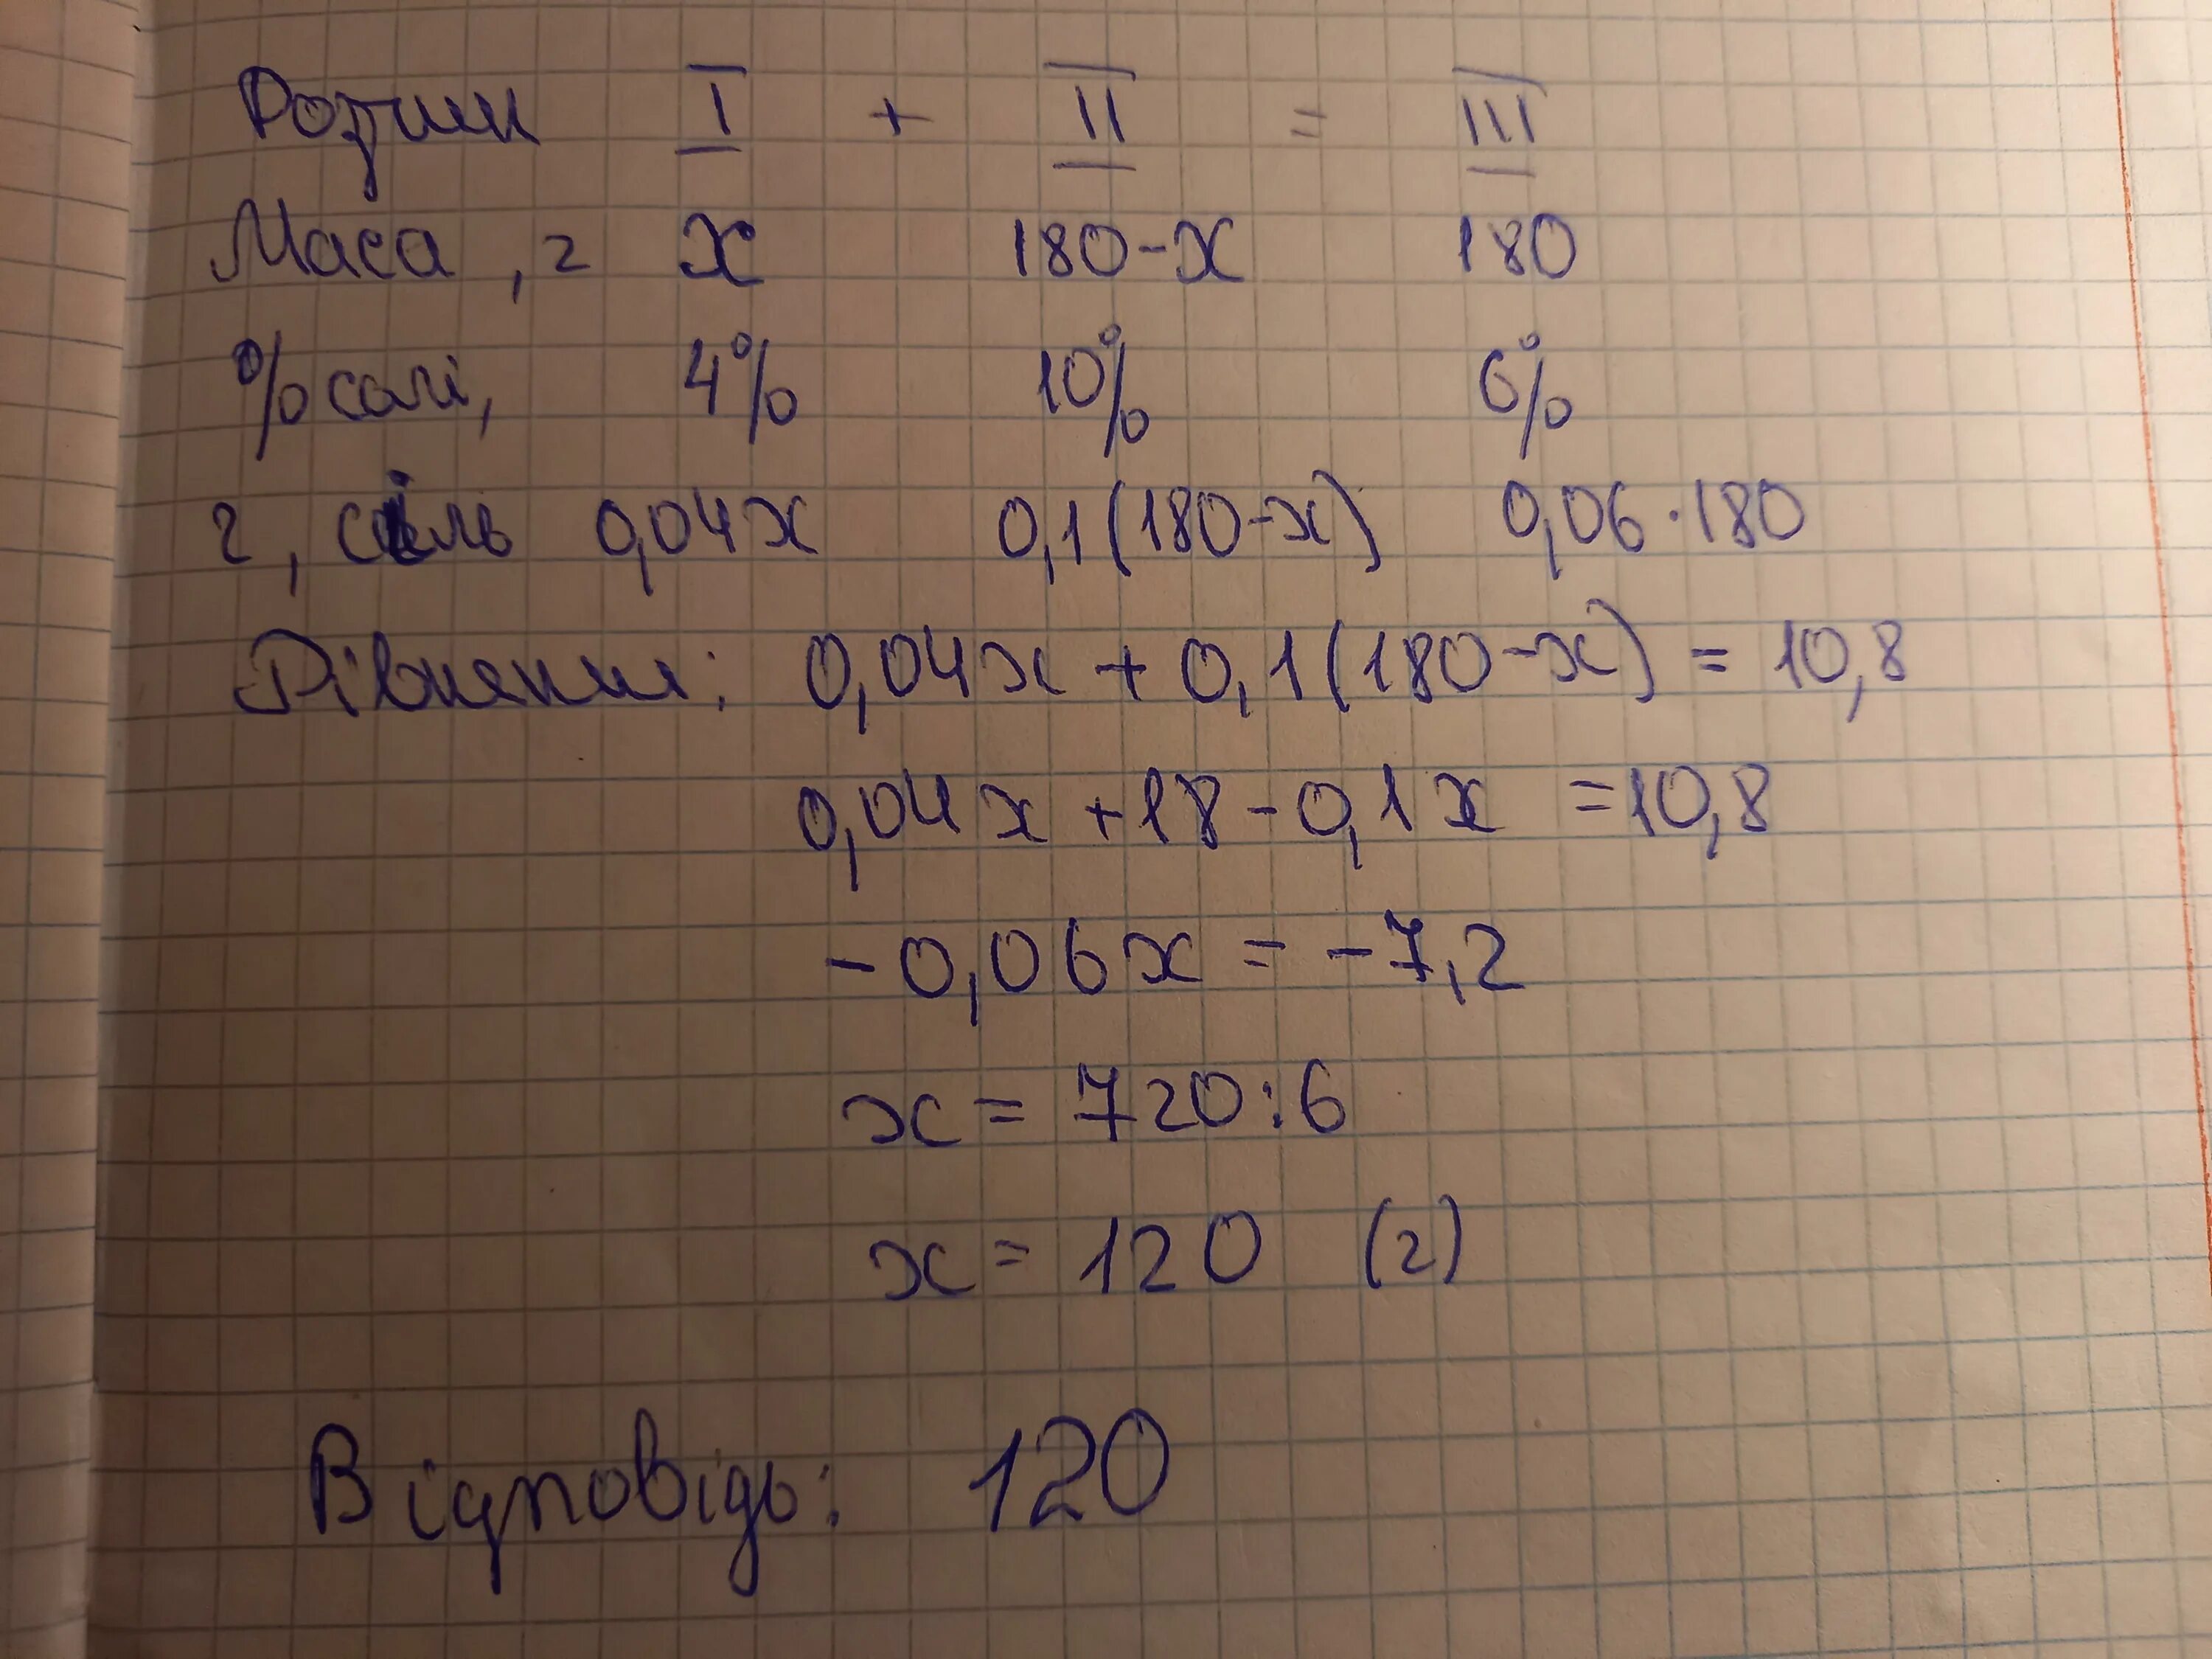 Розчин I + II = III
Маса, г x 180-x 180
% солі, 4% 10% 6%
г, сіль 0,04x 0,1(180-x) 0,06·180
Рівняння: 0,04x + 0,1(180-x) = 10,8
0,04x + 18 - 0,1x = 10,8
-0,06x = -7,2
x = 720:6
x = 120 (г)
Відповідь: 120